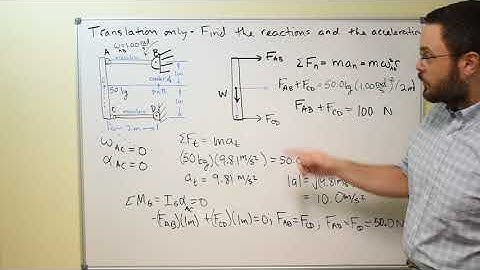 Translation only - Find the reactions and the acceleration
A
B
ω_AB = 1.00 rad/s
massless
center
1m
50 kg
1m
C
massless
D
2m
F_AB
W
F_CD
ΣF_n = ma_n = mω²r
F_AB + F_CD = 50.0kg (1.00 rad/s)² 2m
F_AB + F_CD = 100 N
ω_AC = 0
α_AC = 0
ΣF_t = ma_t
(50 kg)(9.81 m/s²) = 50.0
a_t = 9.81 m/s²
|a| =
= 10.0 m/s²
ΣM_G = I_G α_AC = 0
-(F_AB)(1m) + (F_CD)(1m) = 0, F_AB = F_CD, F_AB = F_CD = 50.0 N